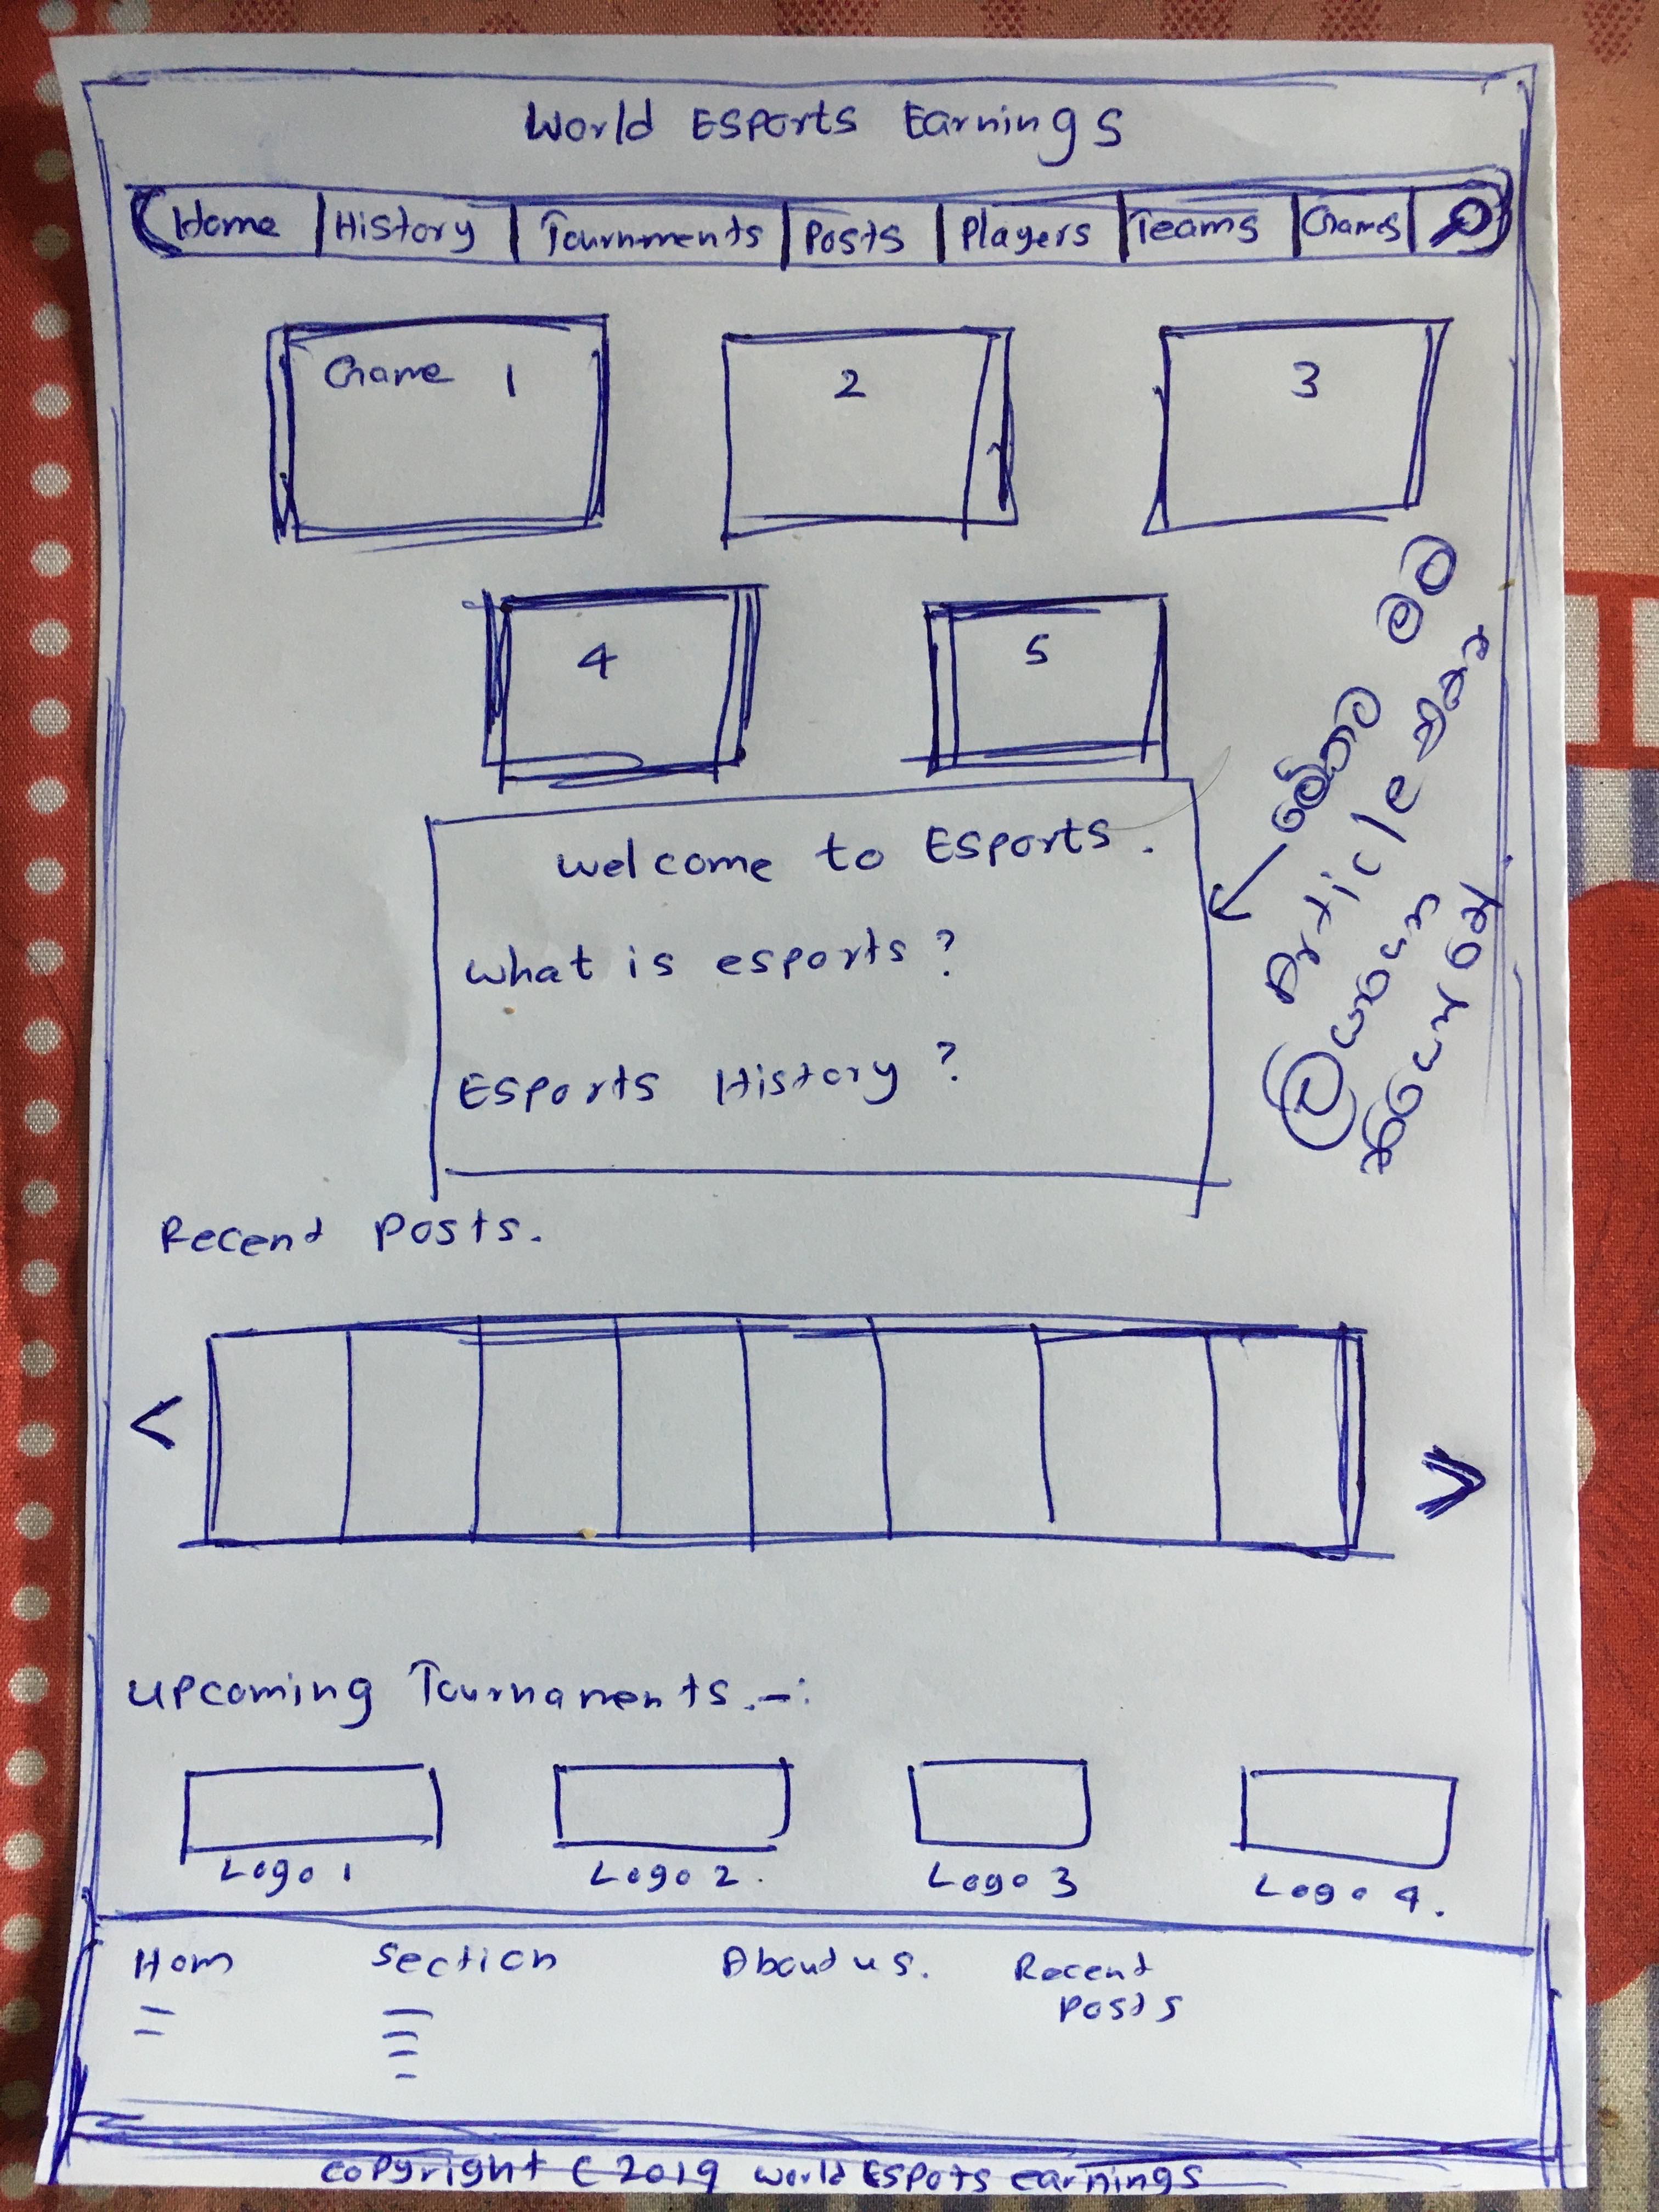 World Esports Earnings
Home History Tournments Posts Players Teams Games
Game 1 2 3
4 5
Welcome to Esports.
What is esports?
Esports History?
Article
Recent Posts.
Upcoming Tournaments.-:
Logo 1 Logo 2. Logo 3 Logo 4.
Hom Section About us. Recent
Posts
Copyright C 2019 World Espots earnings